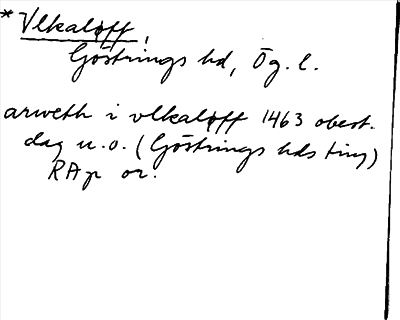 * Vlkaløff,
Göstrings hd, Ög. l.
arweth i vlkaløff 1463 obest.
dag u.o. (Göstrings hds ting)
RAp or.